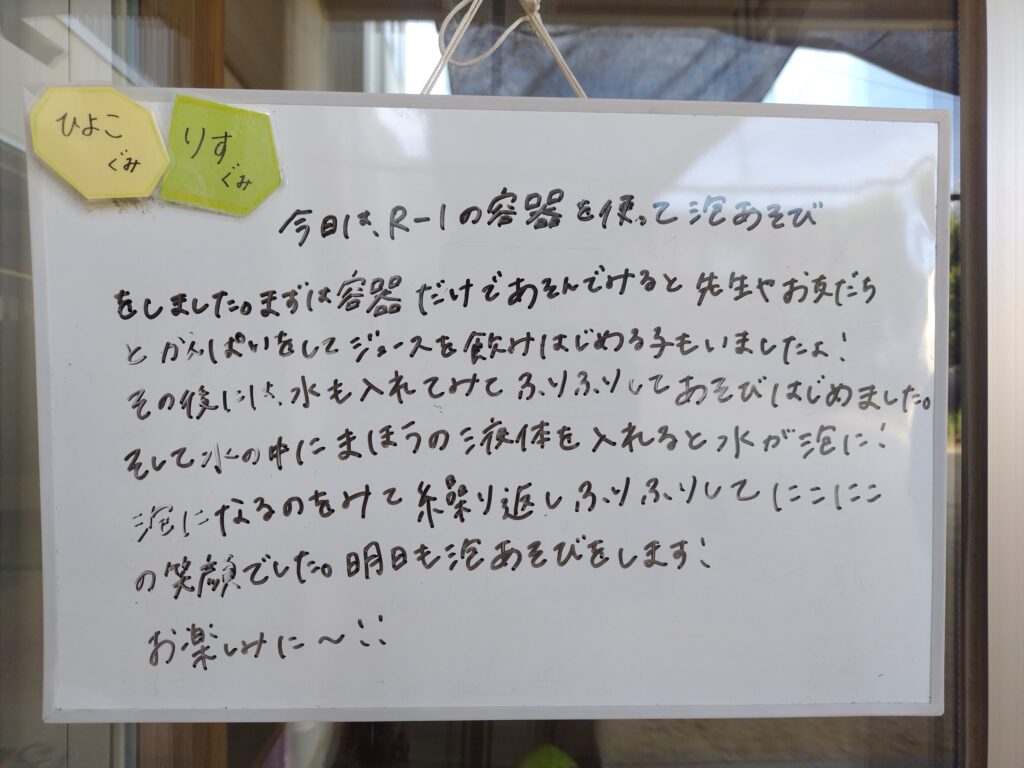 ひよこ
ぐみ
りす
ぐみ
今日は、R-1の容器を使って泡あそび
をしました。まずは容器だけであそんでみると先生やお友だち
とかんぱいをしてジュースを飲みはじめる子もいましたよ!
その後には、水も入れてみてふりふりしてあそびはじめました。
そして水の中にまほうの液体を入れると水が泡に!
泡になるのをみて繰り返しふりふりしてにこにこ
の笑顔でした。明日も泡あそびをします!
お楽しみに〜!!